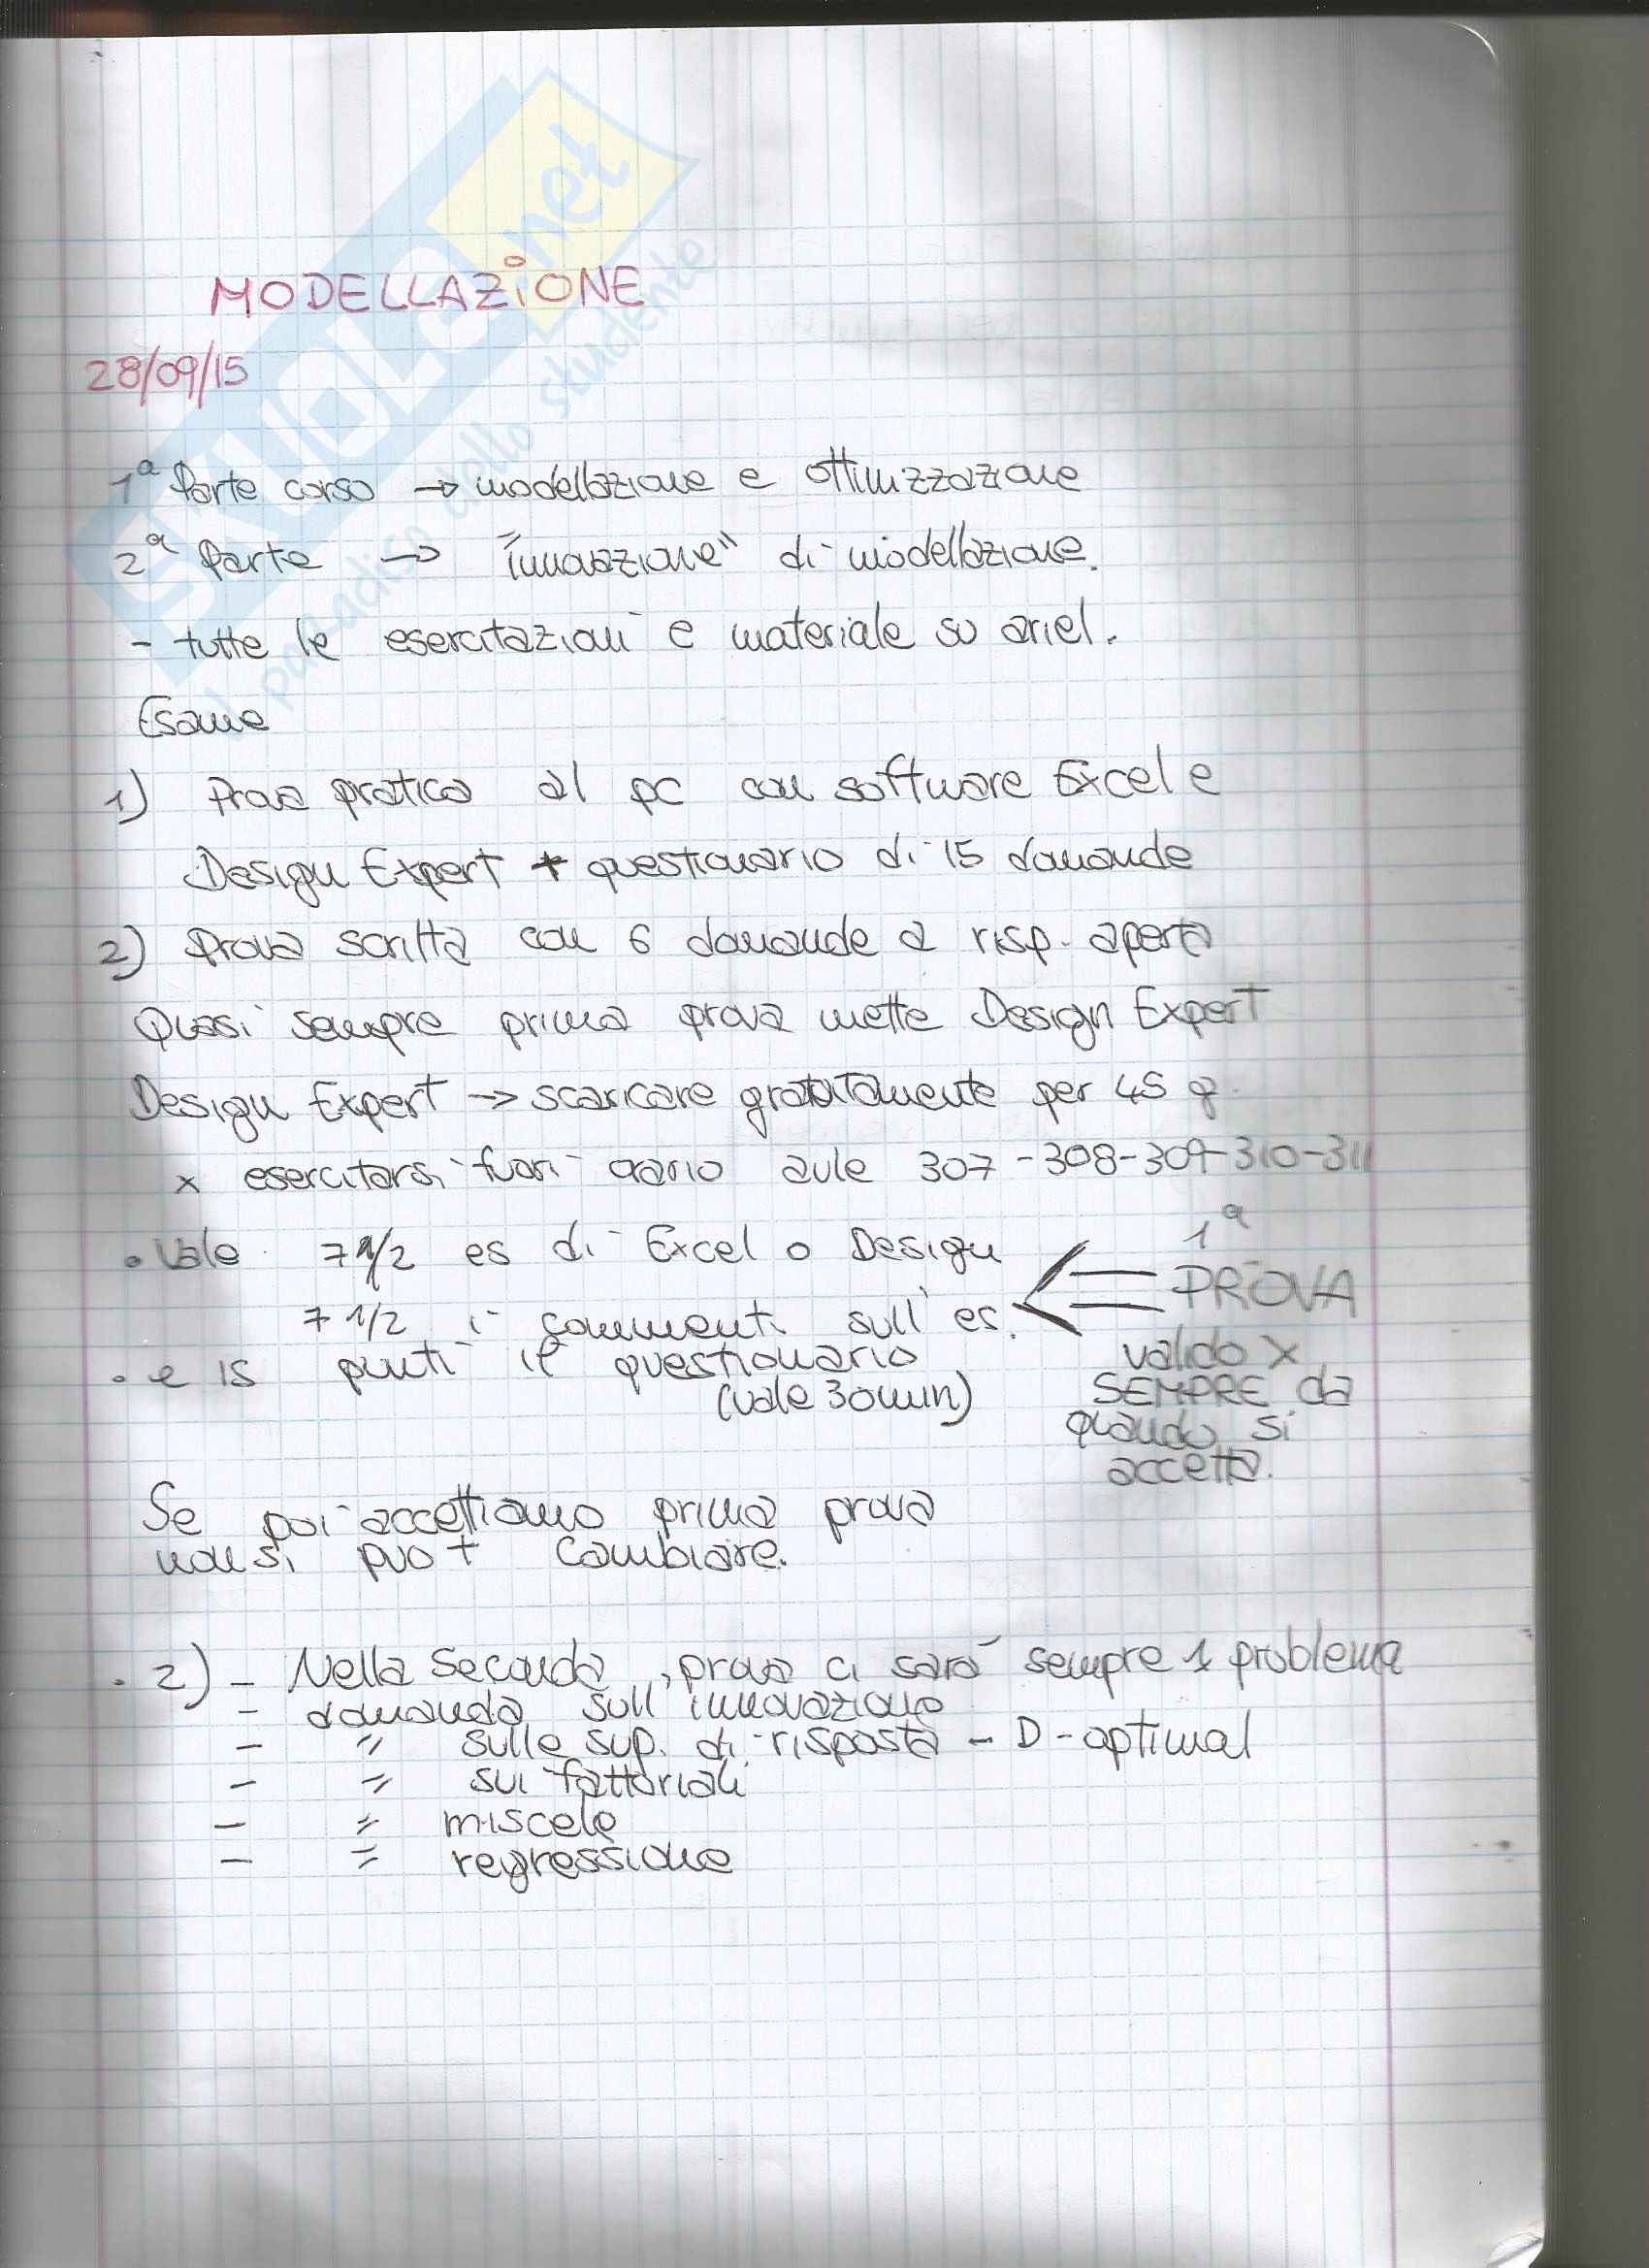 SKUOLA.net
il paradiso dello studente
MODELLAZiONE
28/09/15
1ª Parte corso → modellazione e ottimizzazione
2ª Parte → "innovazione" di modellazione.
- tutte le esercitazioni e materiale su ariel.
Esame
1) Prova pratica al pc con software Excel e
Design Expert + questionario di 15 domande
2) Prova scritta con 6 domande a risp. aperta
Quasi sempre prima prova mette Design Expert
Design Expert → scaricare gratuitamente per 45 g.
x esercitarsi fuori orario aule 307-308-309-310-311
• Vale 7 1/2 es di Excel o Design
7 1/2 i commenti sull'es.
1ª
PROVA
• e 15 punti il questionario
(vale 30 min)
valido x
SEMPRE da
quando si
accetta.
Se poi accettiamo prima prova
non si può + cambiare.
• 2) - Nella seconda prova ci sarà sempre 1 problema
- domanda sull'innovazione
- " sulle sup. di risposta - D-optimal
- " sui fattoriali
- " miscele
- " regressione